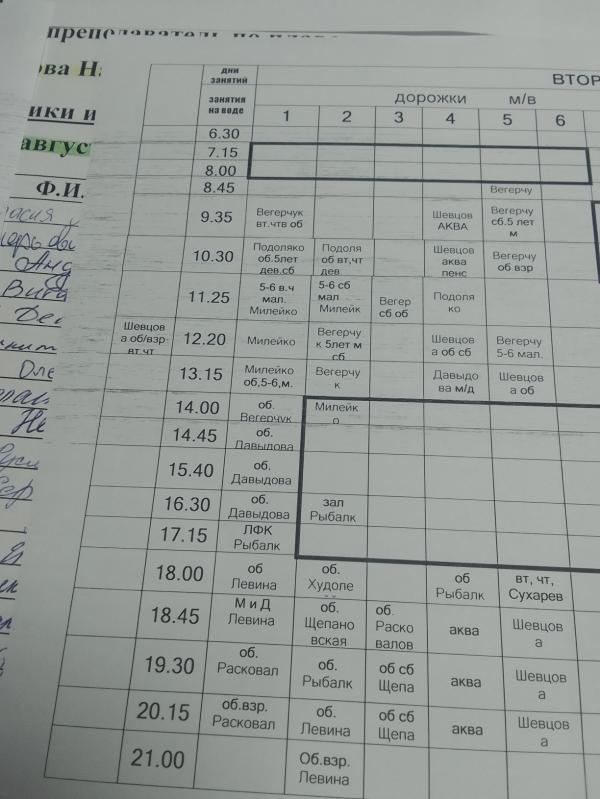 дни
занятий
занятия
на воде
ВТОР
дорожки м/в
1 2 3 4 5 6
6.30
7.15
8.00
8.45 Вегерчу
9.35 Вегерчук
вт.чтв об
Шевцов
АКВА
Вегерчу
сб.5 лет
м
10.30 Подоляко
об.5лет
дев.сб
Подоля
об вт,чт
дев
Шевцов
аква
пенс
Вегерчу
об взр
11.25 5-6 в.ч
мал.
Милейко
5-6 сб
мал
Милейк
Вегер
сб об
Подоля
ко
Шевцов
а об/взр
вт.чт
12.20 Милейко
Вегерчу
к 5лет м
сб
Шевцов
а об сб
Вегерчу
5-6 мал.
13.15 Милейко
об,5-6,м.
Вегерчу
к
Давыдо
ва м/д
Шевцов
а об
14.00 об.
Вегерчук
Милейк
о
14.45 об.
Давыдова
15.40 об.
Давыдова
16.30 об.
Давыдова
зал
Рыбалк
17.15 ЛФК
Рыбалк
18.00 об
Левина
об.
Худоле
об
Рыбалк
вт, чт,
Сухарев
18.45 М и Д
Левина
об.
Щепано
вская
об.
Раско
валов
аква
Шевцов
а
19.30 об.
Расковал
об.
Рыбалк
об сб
Щепа
аква
Шевцов
а
20.15 об.взр.
Расковал
об.
Левина
об сб
Щепа
аква
Шевцов
а
21.00 Об.взр.
Левина
ова Н
ики и
август
Ф.И.